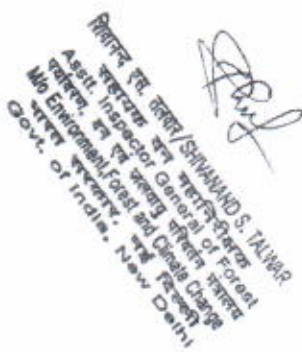 शिवानन्द एस. तलवार/SHIVANAND S. TALWAR
सहायक वन महानिरीक्षक
Asstt. Inspector General of Forest
पर्यावरण, वन एवं जलवायु परिवर्तन मंत्रालय
M/o Environment, Forest and Climate Change
भारत सरकार, नई दिल्ली
Govt. of India, New Delhi